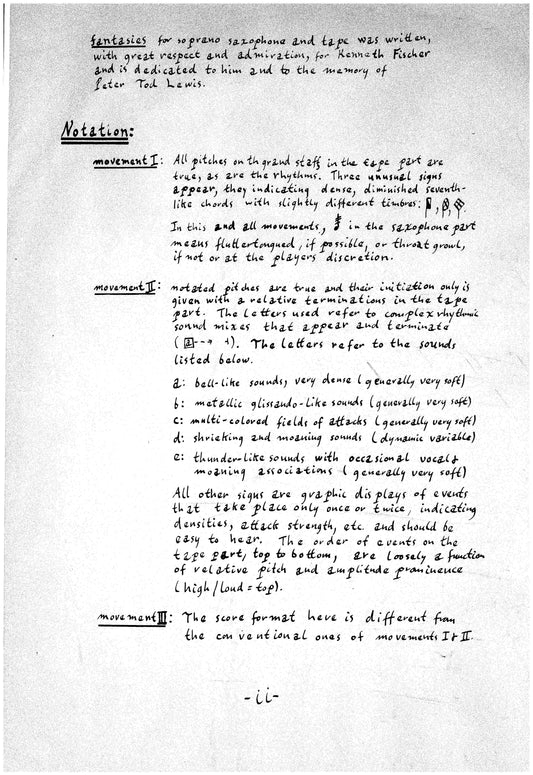 fantasies for soprano saxophone and tape was written,
with great respect and admiration, for Kenneth Fischer
and is dedicated to him and to the memory of
Peter Tod Lewis.
Notation:
movement I: All pitches on th grand staff in the tape part are
true, as are the rhythms. Three unusual signs
appear, they indicating dense, diminished seventh-
like chords with slightly different timbres:
In this and all movements, in the saxophone part
means fluttertongued, if possible, or throat growl,
if not or at the players discretion.
movement II: notated pitches are true and their initiation only is
given with a relative terminations in the tape
part. The letters used refer to complex rhythmic
sound mixes that appear and terminate
(a---→ ⊣). The letters refer to the sounds
listed below.
a: bell-like sounds, very dense (generally very soft)
b: metallic glissando-like sounds (generally very soft)
c: multi-colored fields of attacks (generally very soft)
d: shrieking and moaning sounds (dynamic variable)
e: thunder-like sounds with occasional vocal &
moaning associations (generally very soft)
All other signs are graphic displays of events
that take place only once or twice, indicating
densities, attack strength, etc. and should be
easy to hear. The order of events on the
tape part, top to bottom, are loosely a function
of relative pitch and amplitude prominence
(high/loud = top).
movement III: The score format here is different from
the conventional ones of movements I & II.
-ii-